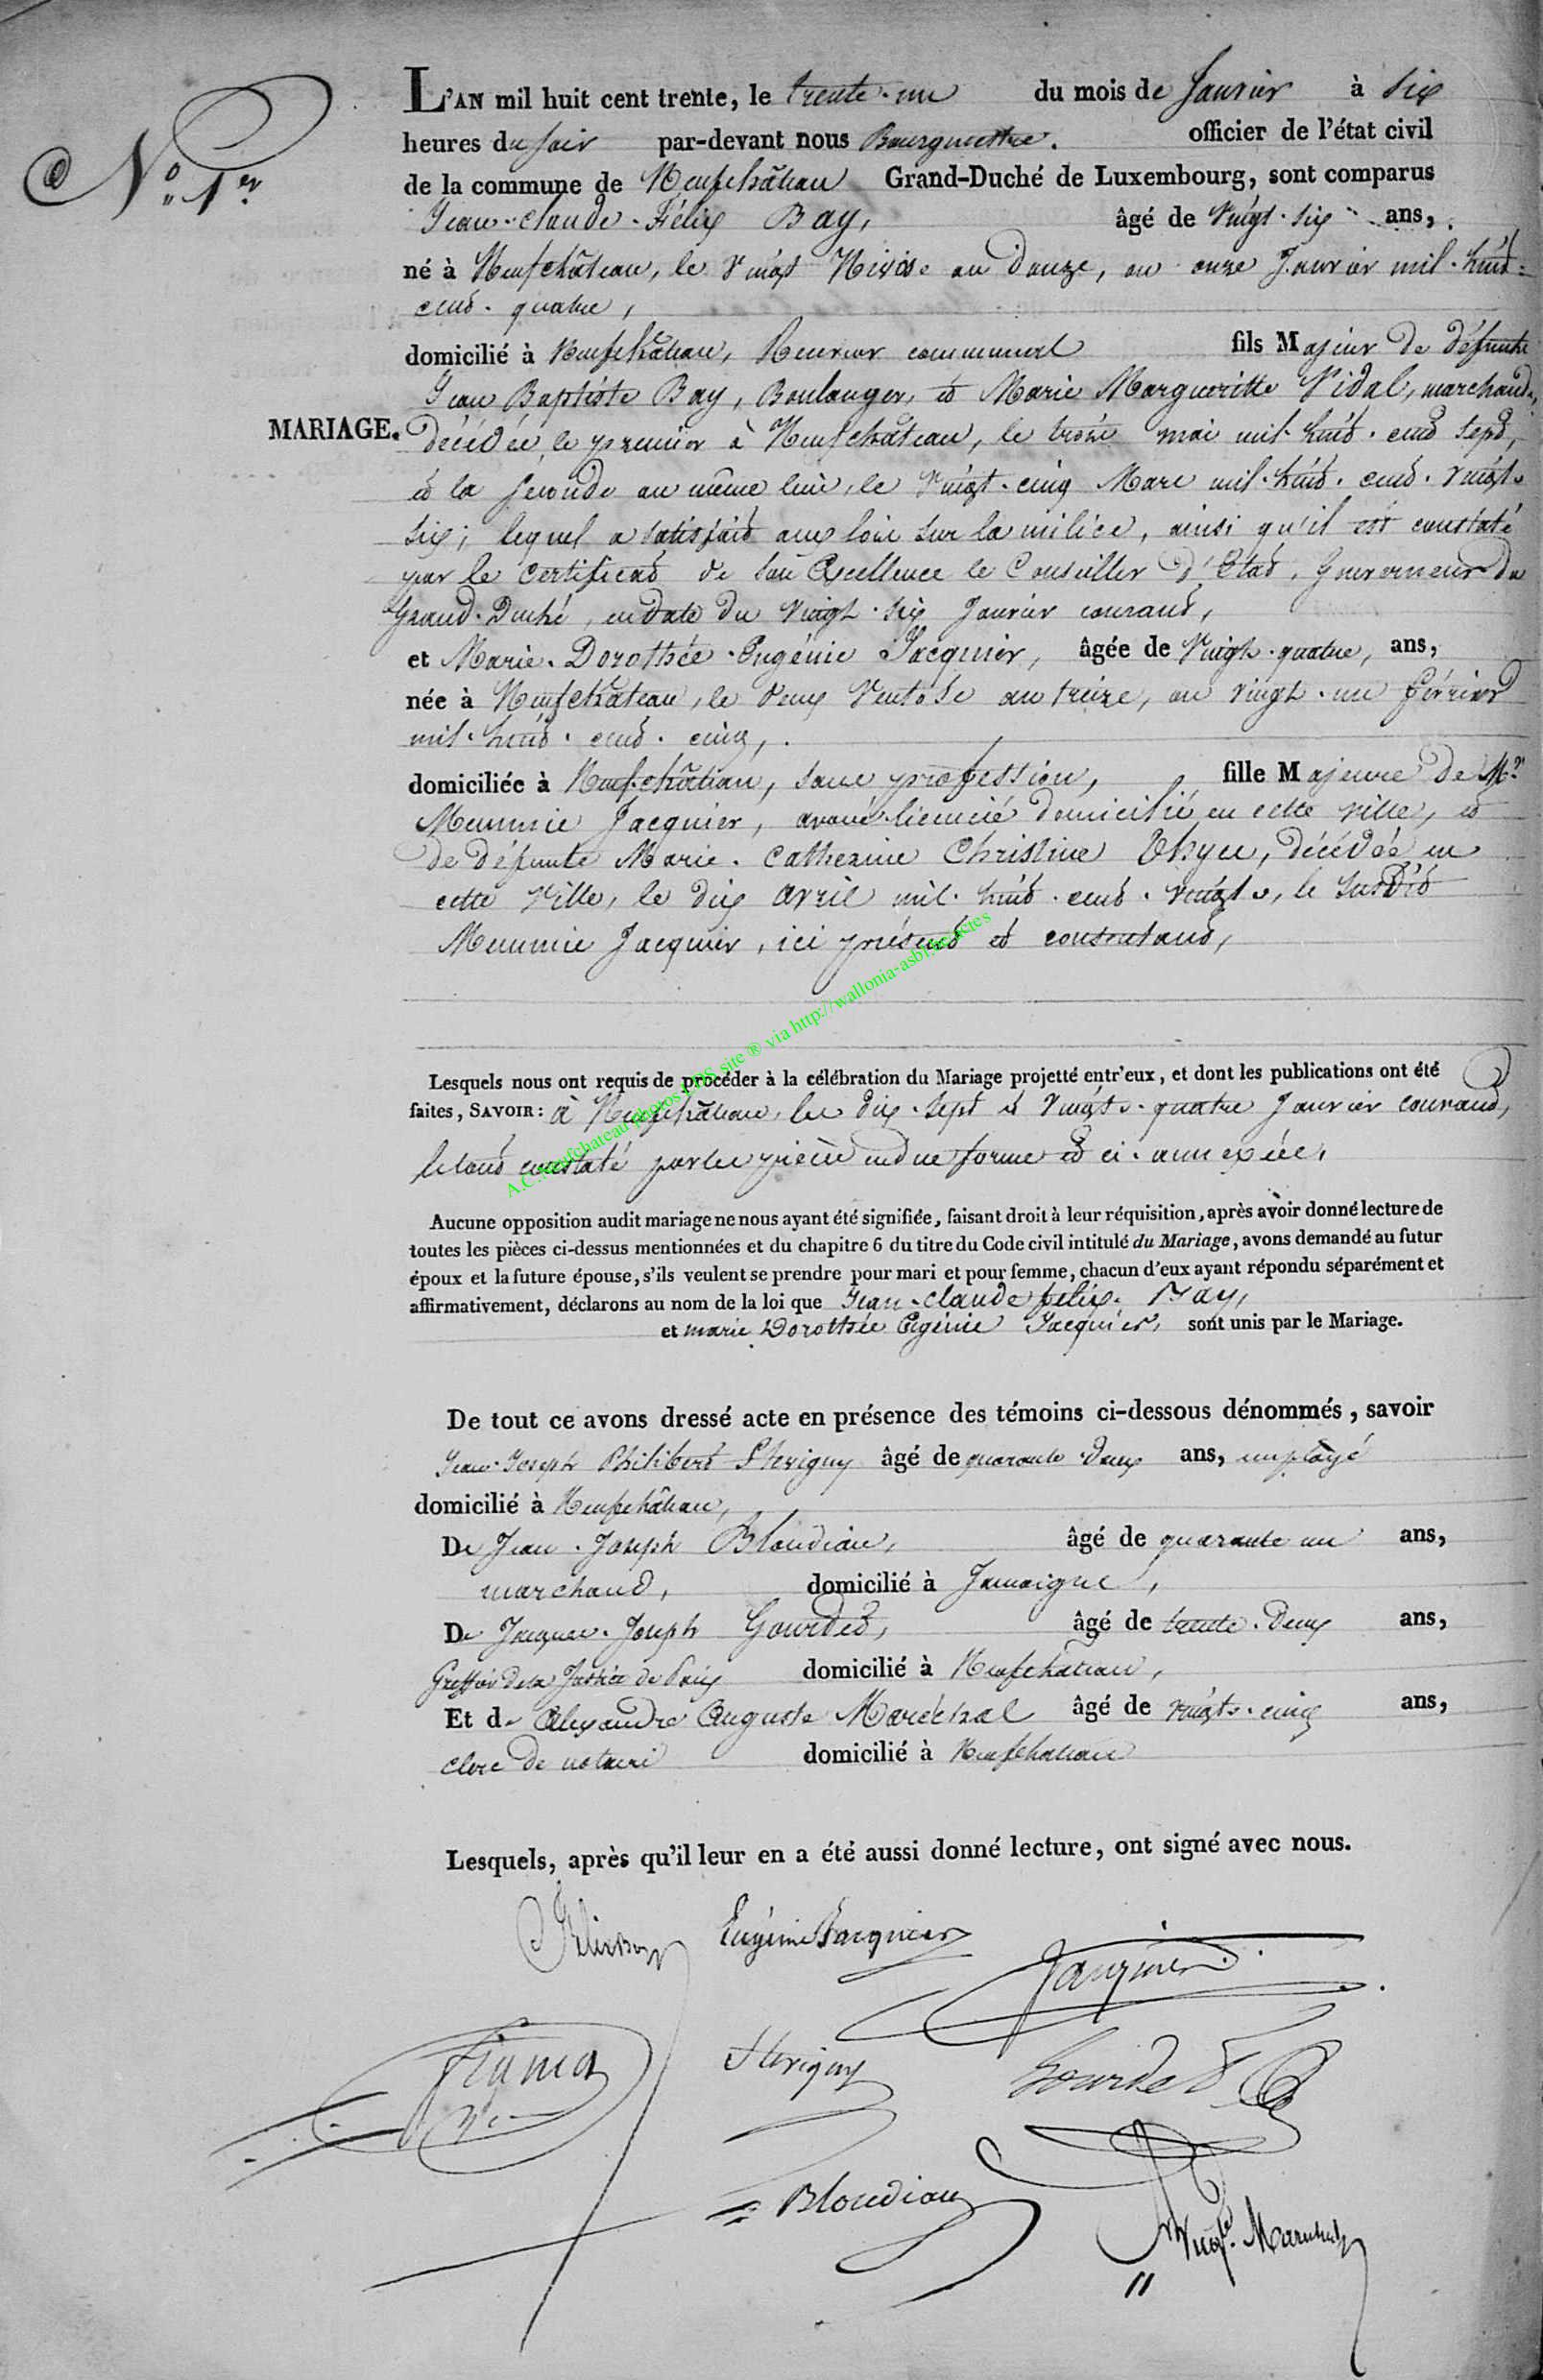 N.o 1.er
L'AN mil huit cent trente, le trente-un du mois de Janvier à Six
heures du soir par-devant nous Bourguestre. officier de l'état civil
de la commune de Neufchâteau Grand-Duché de Luxembourg, sont comparus
Jean-Claude-Félix Bay, âgé de Vingt-six ans,
né à Neufchâteau, le Vingt Nivôse an Douze, ou onze Janvier mil-huit-
cent-quatre,
domicilié à Neufchâteau, Receveur communal fils Majeur de défunts
Jean Baptiste Bay, Boulanger, et Marie Margueritte Vidal, marchande,
MARIAGE.
décédés, le premier à Neufchâteau, le treize mai mil-huit-cent sept,
et la seconde au même lieu, le Vingt-cinq Mars mil-huit-cent-vingt-
six; lequel a satisfait aux lois sur la milice, ainsi qu'il est constaté
par le certificat de Son Excellence le Conseiller d'Etat, Gouverneur du
Grand-Duché, en date du vingt-six Janvier courant,
et Marie-Dorothée-Eugénie Jacquier, âgée de Vingt-quatre, ans,
née à Neufchâteau, le deux Ventôse an treize, ou vingt-un février
mil-huit-cent-cinq,
domiciliée à Neufchâteau, sans profession, fille Majeure de Mr
Memmie Jacquier, avoué licencié domicilié en cette ville, et
de défunte Marie-Catherine Christine Thyes, décédée en
cette Ville, le dix avril mil-huit-cent-vingt, le susdit
Memmie Jacquier, ici présent et consentant,
Lesquels nous ont requis de procéder à la célébration du Mariage projetté entr'eux, et dont les publications ont été
faites, SAVOIR: à Neufchâteau, les dix-sept et Vingt-quatre Janvier courant,
le tout constaté par les pièces en due forme et ci-annexées.
Aucune opposition audit mariage ne nous ayant été signifiée, faisant droit à leur réquisition, après avoir donné lecture de
toutes les pièces ci-dessus mentionnées et du chapitre 6 du titre du Code civil intitulé du Mariage, avons demandé au futur
époux et la future épouse, s'ils veulent se prendre pour mari et pour femme, chacun d'eux ayant répondu séparément et
affirmativement, déclarons au nom de la loi que Jean-Claude felix Bay,
et marie Dorothée Eugénie Jacquier, sont unis par le Mariage.
De tout ce avons dressé acte en présence des témoins ci-dessous dénommés, savoir
Jean-Joseph Philibert Stevigny âgé de quarante deux ans, employé
domicilié à Neufchâteau,
De Jean-Joseph Blondiau, âgé de quarante un ans,
marchand, domicilié à Jamoigne,
De Jacques-Joseph Gourdet, âgé de trente-Deux ans,
Greffier de la Justice de Paix domicilié à Neufchâteau,
Et de Alexandre Auguste Maréchal âgé de vingt-cinq ans,
clerc de notaire domicilié à Neufchateau
Lesquels, après qu'il leur en a été aussi donné lecture, ont signé avec nous.
Félix Bay Eugénie Jacquier Jacquier
Stevigny Gourdet
Blondiau
Augte. Maréchal
A.C. Neufchateau photos LDS site ® via http://wallonia-asbl.be/actes